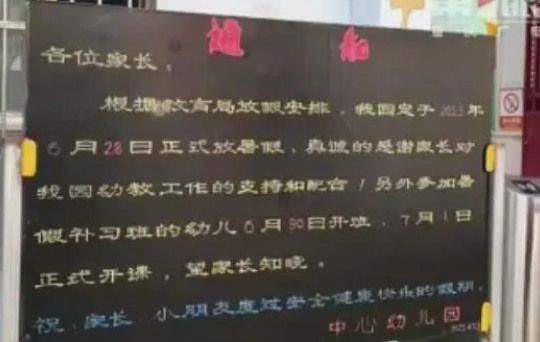 通知
各位家长：
根据教育局放假安排，我园定于2013年
6月28日正式放暑假，真诚的感谢家长对
我园幼教工作的支持和配合！另外参加暑
假补习班的幼儿6月30日开班，7月1日
正式开课，望家长知晓。
祝：家长、小朋友度过安全健康快乐的假期。
中心幼儿园